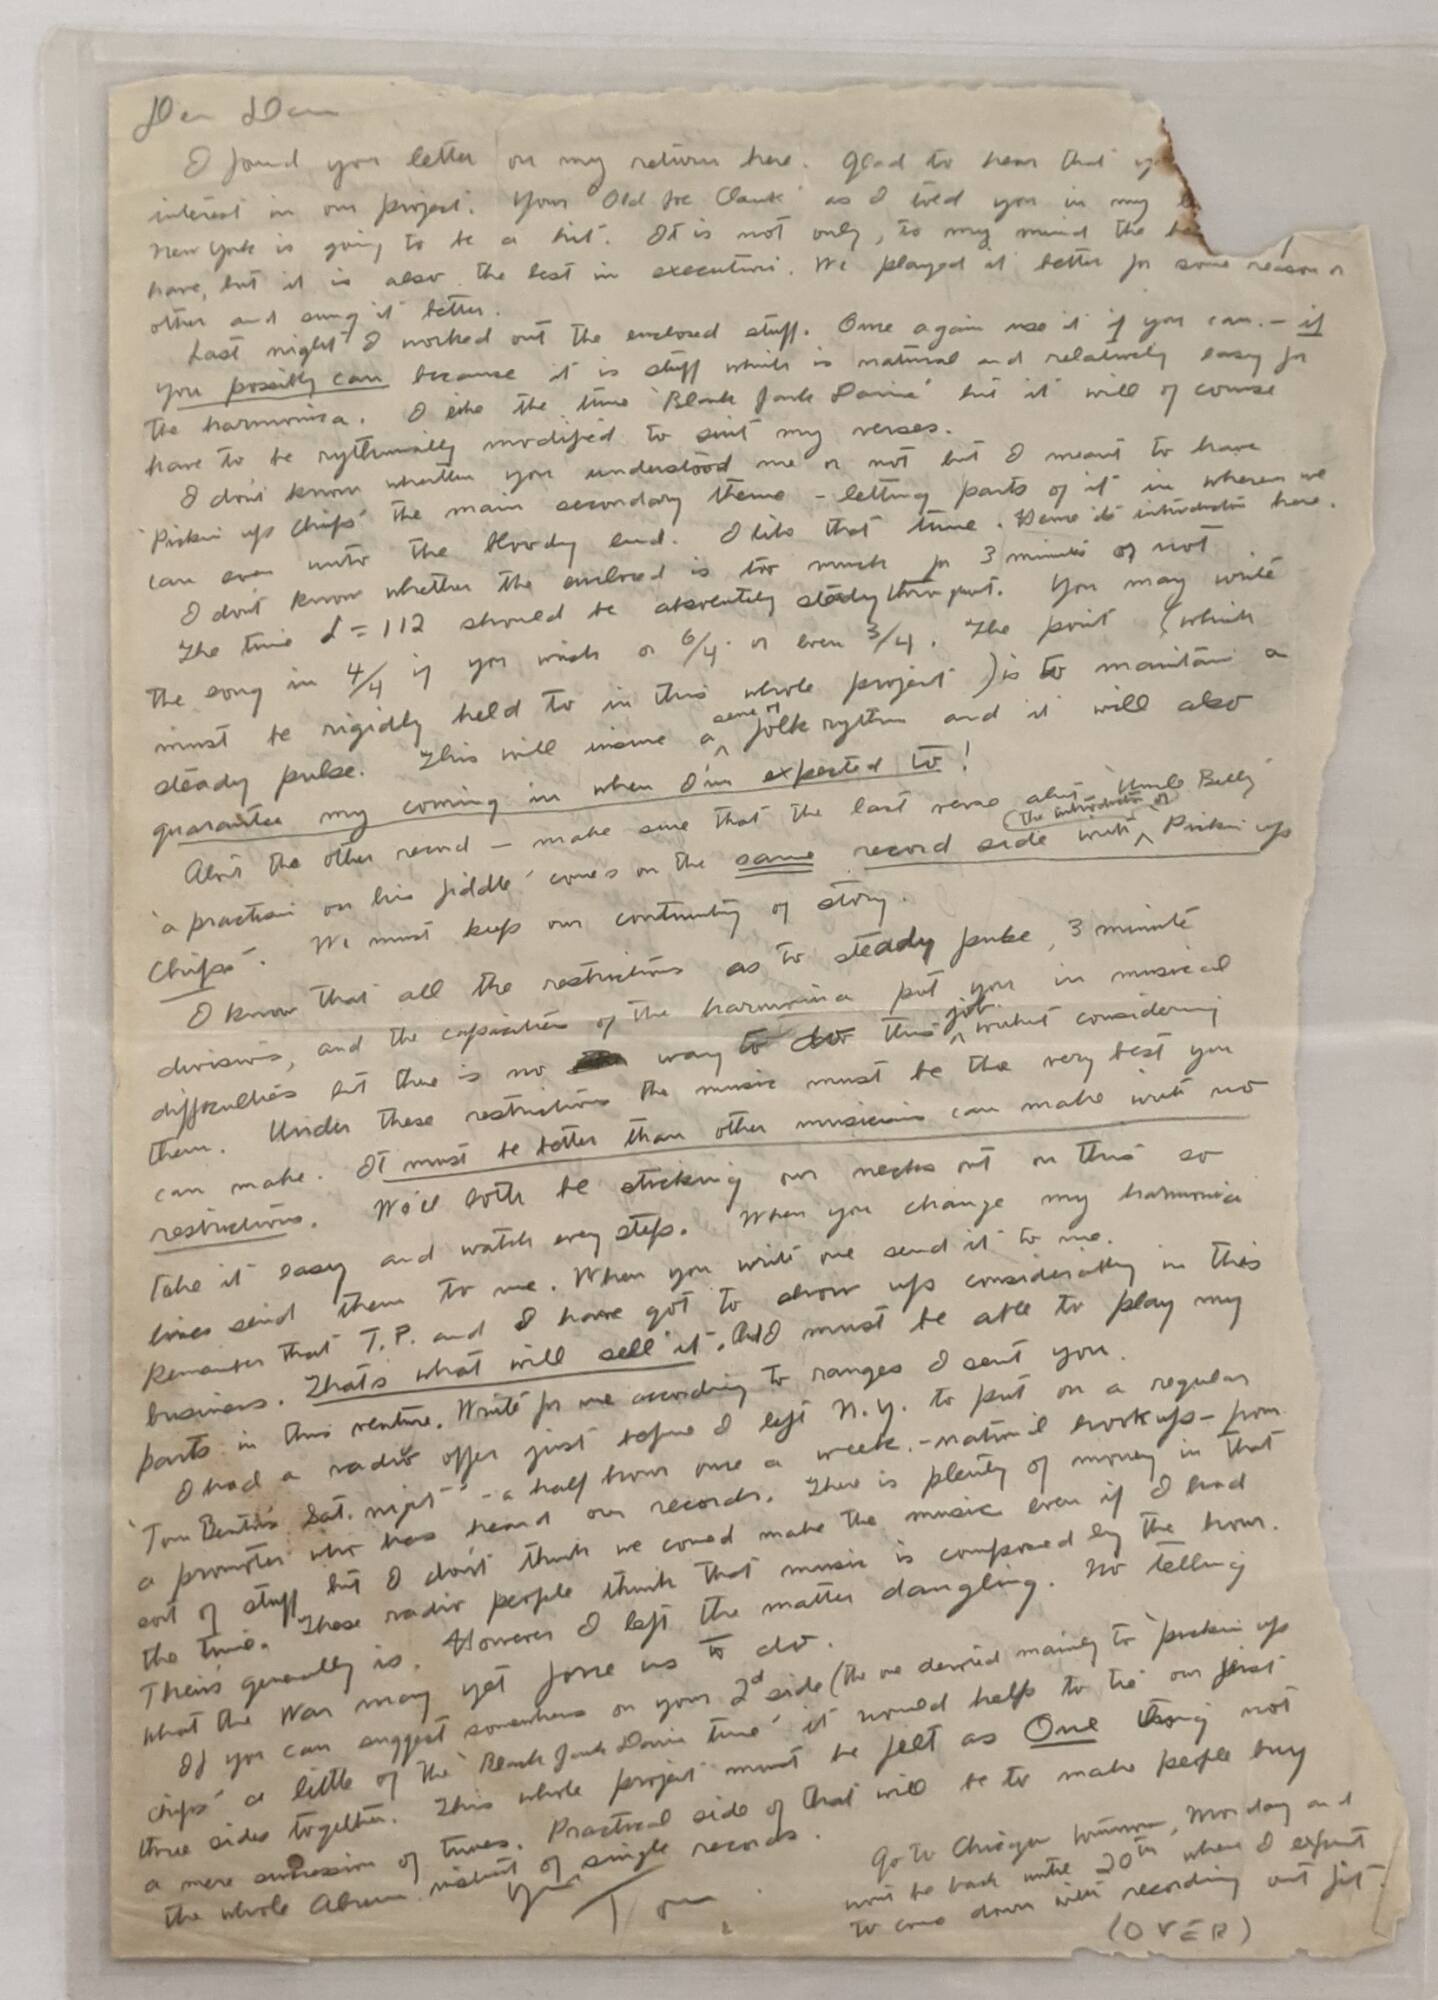 Dear Dan
I found your letter on my return here. Glad to hear that
interest in our project. Your "Old Joe Clark" as I told you in my
New York is going to be a hit. It is not only, to my mind the
have, but it is also the best in execution. We played it better for some reason or
other and sung it better.
Last night I worked out the enclosed stuff. Once again use it if you can. – if
you possibly can because it is stuff which is natural and relatively easy for
the harmonica. I like the tune 'Black Jack Davie' but it will of course
have to be rythmically modified to suit my verses.
I don't know whether you understood me or not but I meant to have
'Pickin up Chips' the main secondary theme – letting parts of it in wherever we
can even unto the bloody end. I like that tune. Hence its introduction here.
I don't know whether the enclosed is too much for 3 minutes or not
The time = 112 should be absolutely steady throughout. You may write
the song in 4/4 if you wish or 6/4 or even 3/4. The point (which
must be rigidly held to in this whole project) is to maintain a
steady pulse. This will insure a sense of folk rythm and it will also
guarantee my coming in when I'm expected to!
About the other record – make sure that the last verse about 'Uncle Billy
a practicin on his fiddle' comes on the same record side with (the introduction of) Pickin up
Chips". We must keep our continuity of story.
I know that all the restrictions as to steady pulse, 3 minute
divisions, and the capacities of the harmonica put you in musical
difficulties but there is no way to do this job without considering
them. Under these restrictions the music must be the very best you
can make. It must be better than other musicians can make with no
restrictions. We'll both be sticking our necks out on this so
take it easy and watch every step. When you change my harmonica
lines send them to me. When you write one send it to me.
Remember that T.P. and I have got to show up considerably in this
business. That's what will sell it. And I must be able to play my
parts in this venture. Write for me according to ranges I sent you.
I had a radio offer just before I left N.Y. to put on a regular
'Tom Benton's Sat. night" – a half hour once a week. – national hook ups – from
a promoter who has heard our records. There is plenty of money in that
sort of stuff but I don't think we could make the music even if I had
the time. These radio people think that music is composed by the hour.
Theirs generally is. However I left the matter dangling. No telling
what the War may yet force us to do.
If you can suggest somewhere on your 2d side (the one devoted mainly to 'pickin up
chips' a little of the 'Black Jack Davie tune' it would help to tie our first
three sides together. This whole project must be felt as One thing not
a mere succession of tunes. Practical side of that will be to make people buy
the whole Album instead of single records.
Yours
Tom
Go to Chicago tomorrow, Monday and
wont be back until 20th when I expect
to come down with recording out fit.
(OVER)